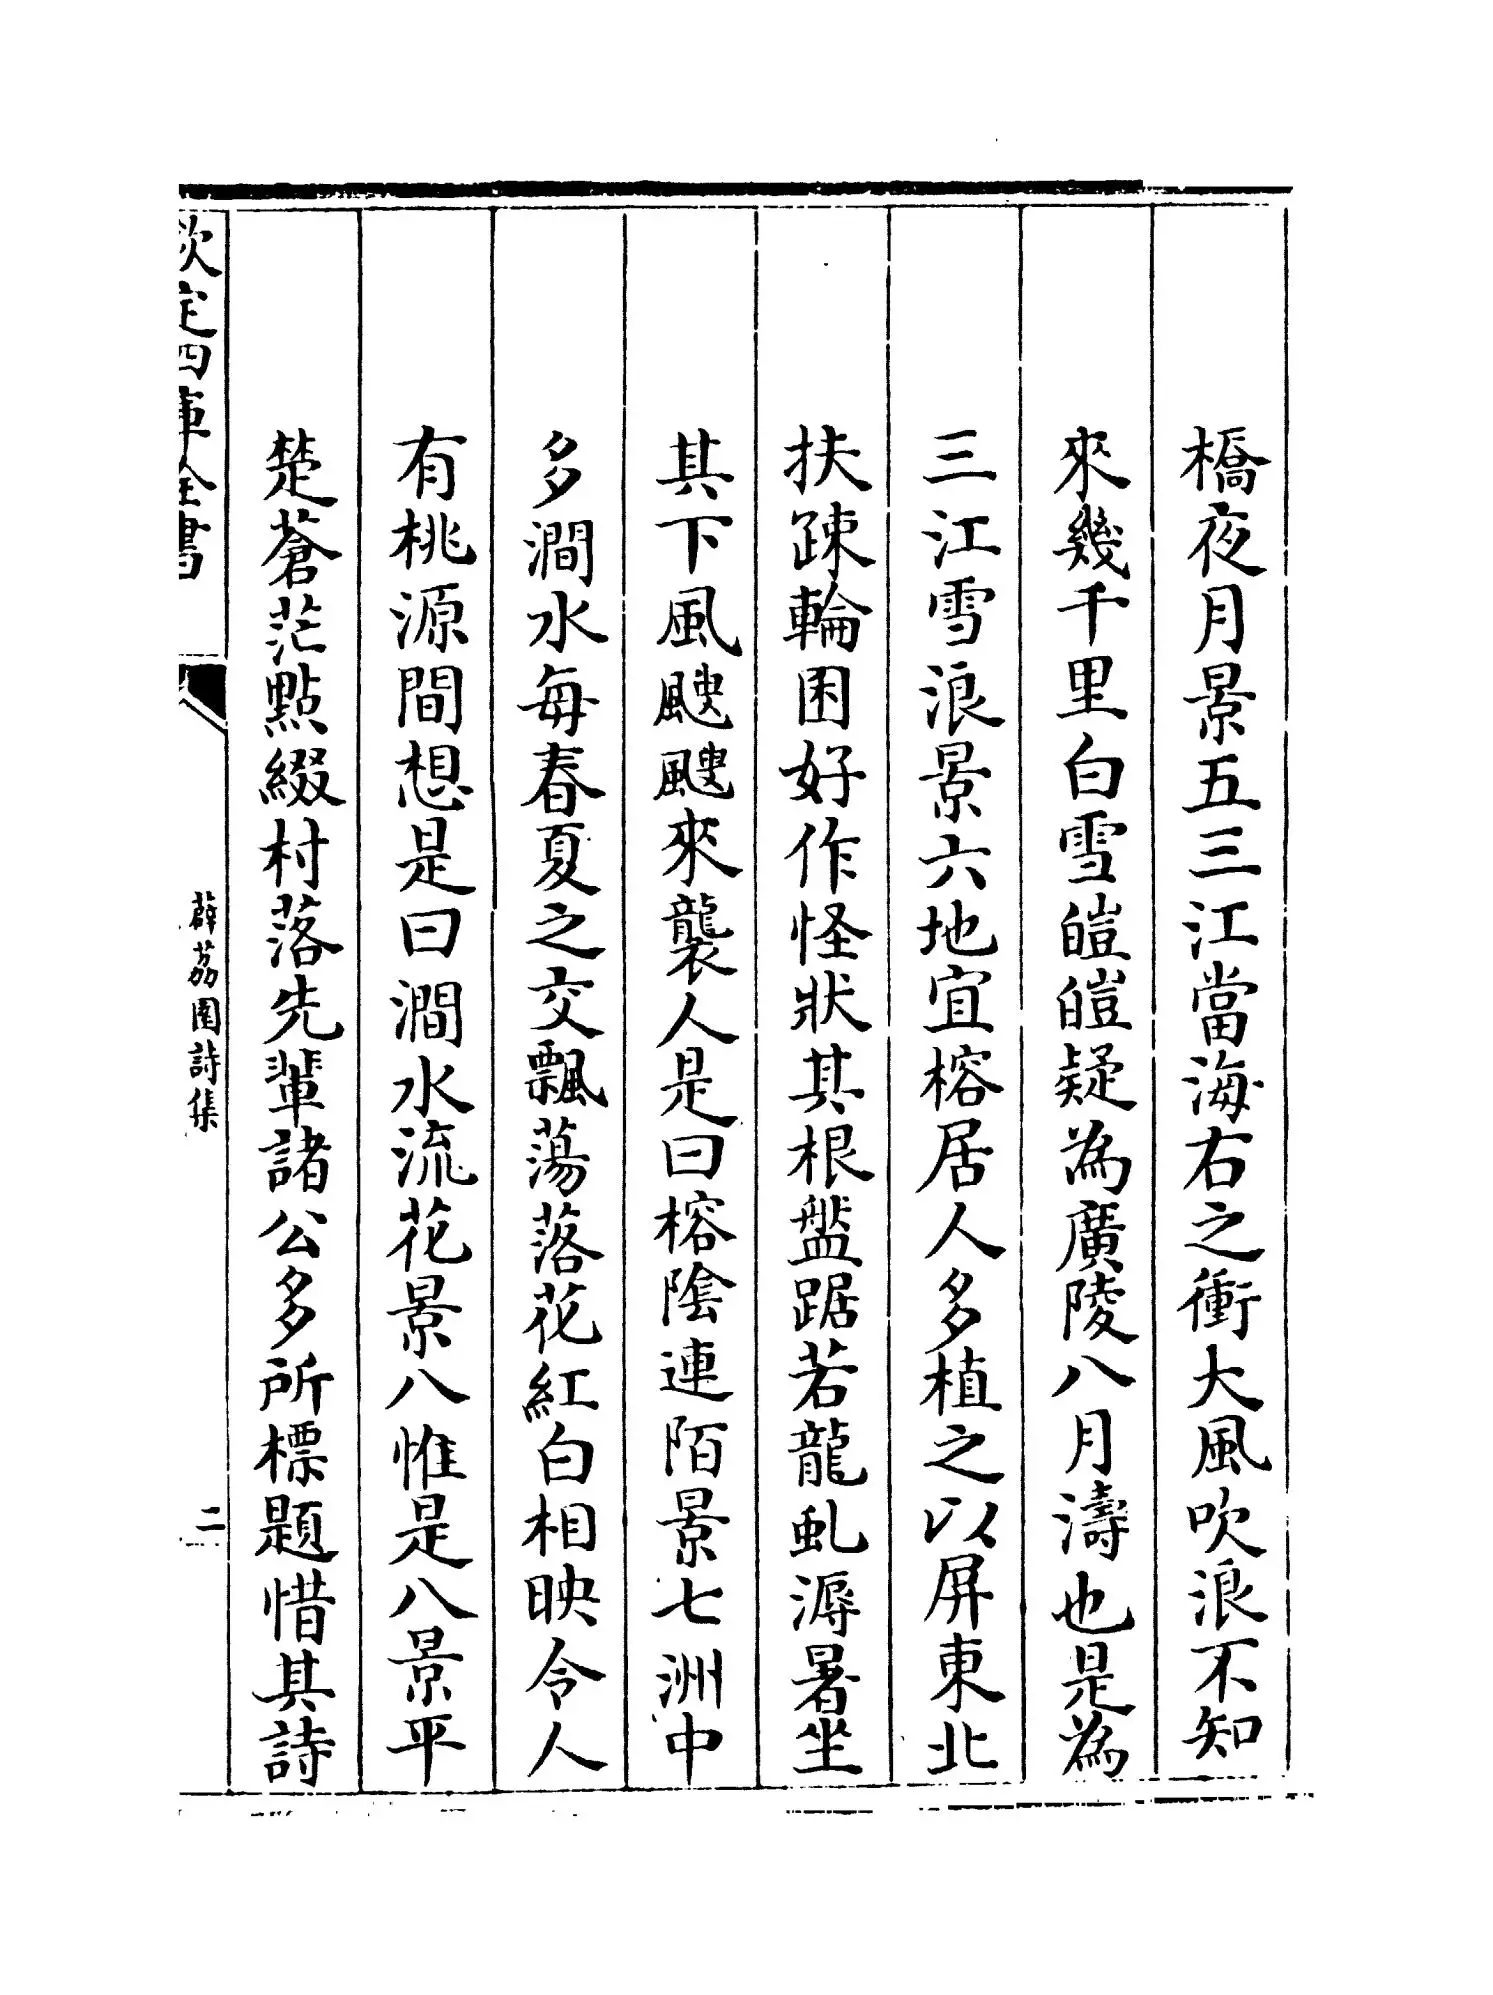 橋夜月景五三江當海右之衝大風吹浪不知
來幾千里白雪皚皚疑為廣陵八月濤也是為
三江雪浪景六地宜榕居人多植之以屏東北
扶疎輪囷好作怪狀其根盤踞若龍虬溽暑坐
其下風颼颼來襲人是曰榕陰連陌景七洲中
多澗水每春夏之交飄蕩落花紅白相映令人
有桃源間想是曰澗水流花景八惟是八景平
楚蒼茫點綴村落先軰諸公多所標題惜其詩
欽定四庫全書
薜荔園詩集
二